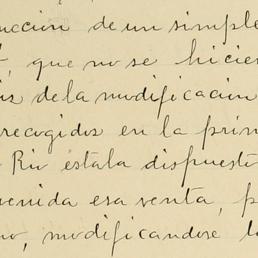 uccion de un simple
que no se hicien
is de la modificacion
recogidos en la prin
Rio estaba dispuesto
venida esa venta, p
no, modificandose l